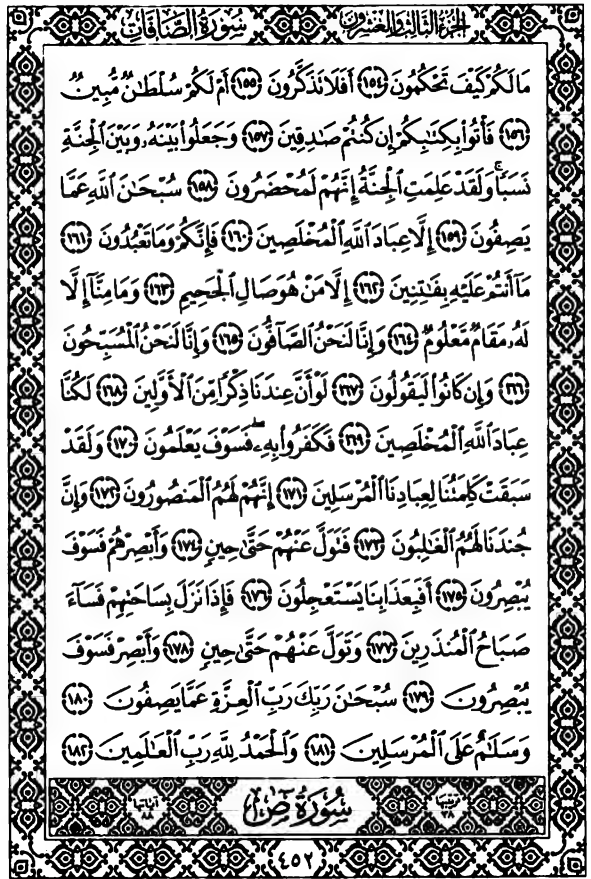 الجزء الثالث والعشرون سورة الصافات
مَا لَكُمْ كَيْفَ تَحْكُمُونَ ١٥٤ أَفَلَا تَذَكَّرُونَ ١٥٥ أَمْ لَكُمْ سُلْطَانٌ مُّبِينٌ
١٥٦ فَأْتُوا بِكِتَابِكُمْ إِن كُنتُمْ صَادِقِينَ ١٥٧ وَجَعَلُوا بَيْنَهُ وَبَيْنَ الْجِنَّةِ
نَسَبًا ۚ وَلَقَدْ عَلِمَتِ الْجِنَّةُ إِنَّهُمْ لَمُحْضَرُونَ ١٥٨ سُبْحَانَ اللَّهِ عَمَّا
يَصِفُونَ ١٥٩ إِلَّا عِبَادَ اللَّهِ الْمُخْلَصِينَ ١٦٠ فَإِنَّكُمْ وَمَا تَعْبُدُونَ ١٦١
مَا أَنتُمْ عَلَيْهِ بِفَاتِنِينَ ١٦٢ إِلَّا مَنْ هُوَ صَالِ الْجَحِيمِ ١٦٣ وَمَا مِنَّا إِلَّا
لَهُ مَقَامٌ مَّعْلُومٌ ١٦٤ وَإِنَّا لَنَحْنُ الصَّافُّونَ ١٦٥ وَإِنَّا لَنَحْنُ الْمُسَبِّحُونَ
١٦٦ وَإِن كَانُوا لَيَقُولُونَ ١٦٧ لَوْ أَنَّ عِندَنَا ذِكْرًا مِّنَ الْأَوَّلِينَ ١٦٨ لَكُنَّا
عِبَادَ اللَّهِ الْمُخْلَصِينَ ١٦٩ فَكَفَرُوا بِهِ ۖ فَسَوْفَ يَعْلَمُونَ ١٧٠ وَلَقَدْ
سَبَقَتْ كَلِمَتُنَا لِعِبَادِنَا الْمُرْسَلِينَ ١٧١ إِنَّهُمْ لَهُمُ الْمَنصُورُونَ ١٧٢ وَإِنَّ
جُندَنَا لَهُمُ الْغَالِبُونَ ١٧٣ فَتَوَلَّ عَنْهُمْ حَتَّىٰ حِينٍ ١٧٤ وَأَبْصِرْهُمْ فَسَوْفَ
يُبْصِرُونَ ١٧٥ أَفَبِعَذَابِنَا يَسْتَعْجِلُونَ ١٧٦ فَإِذَا نَزَلَ بِسَاحَتِهِمْ فَسَاءَ
صَبَاحُ الْمُنذَرِينَ ١٧٧ وَتَوَلَّ عَنْهُمْ حَتَّىٰ حِينٍ ١٧٨ وَأَبْصِرْ فَسَوْفَ
يُبْصِرُونَ ١٧٩ سُبْحَانَ رَبِّكَ رَبِّ الْعِزَّةِ عَمَّا يَصِفُونَ ١٨٠
وَسَلَامٌ عَلَى الْمُرْسَلِينَ ١٨١ وَالْحَمْدُ لِلَّهِ رَبِّ الْعَالَمِينَ ١٨٢
ترتيبها ٣٨ سُورَةُ صٓ آياتها ٨٨
٤٥٢